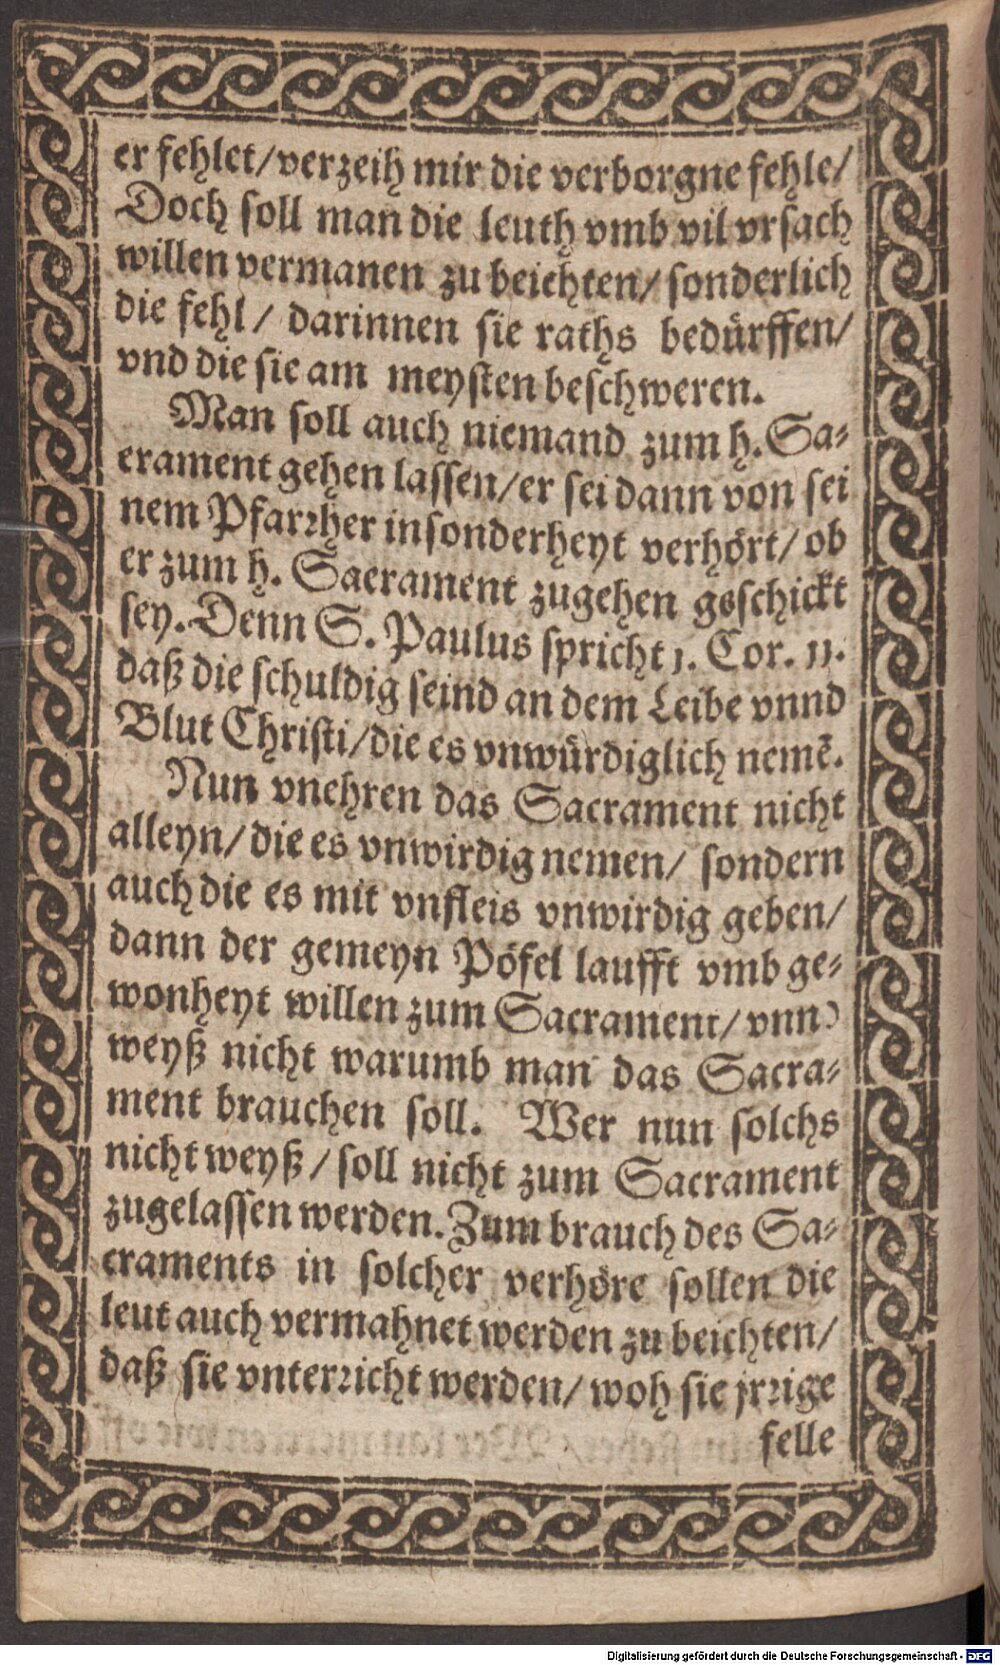 er fehlet/verzeih mir die verborgne fehle/
Doch soll man die leuth vmb vil vrsach
willen vermanen zu beichten/ sonderlich
die fehl/ darinnen sie raths bedürffen/
vnd die sie am meysten beschweren.
Man soll auch niemand zum h. Sa⸗
crament gehen lassen/er sei dann von sei
nem Pfarrher insonderheyt verhört/ ob
er zum h. Sacrament zugehen geschickt
sey. Denn S. Paulus spricht 1. Cor. 11.
daß die schuldig seind an dem Leibe vnnd
Blut Christi/die es vnwürdiglich nemē.
Nun vnehren das Sacrament nicht
alleyn/ die es vnwirdig nemen/ sondern
auch die es mit vnfleis vnwirdig geben/
dann der gemeyn Pöfel laufft vmb ge⸗
wonheyt willen zum Sacrament/ vnnd
weyß nicht warumb man das Sacra⸗
ment brauchen soll. Wer nun solchs
nicht weyß/ soll nicht zum Sacrament
zugelassen werden. Zum brauch des Sa⸗
craments in solcher verhöre sollen die
leut auch vermahnet werden zu beichten/
daß sie vnterricht werden/ woh sie jrrige
felle
Digitalisierung gefördert durch die Deutsche Forschungsgemeinschaft - DFG